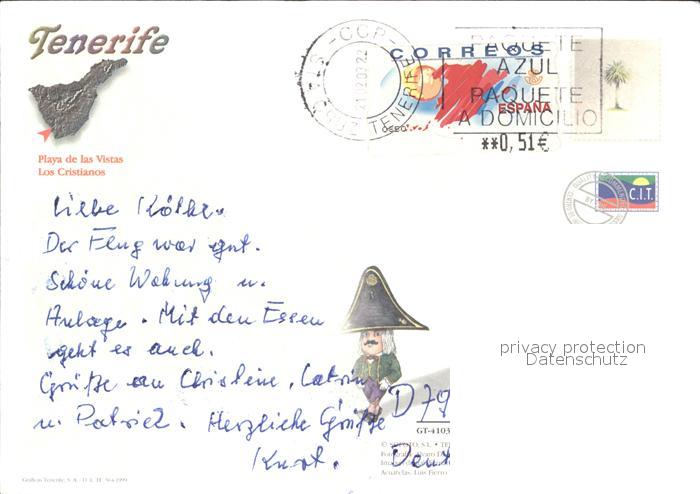 Tenerife
Playa de las Vistas
Los Cristianos
CORREOS
ESPAÑA
PAQUETE
AZUL
PAQUETE
A DOMICILIO
**0,51€
STA. CRUZ TENERIFE
-CCP-
C.I.T.
Liebe
Der Flug war gut.
Schöne Wohung u.
Anlage. Mit den Essen
geht es auch.
Grüße an Christine,
u. Patrick. Herzliche Grüße
Kurt.
privacy protection
Datenschutz
D 79
GT-4103
Deut